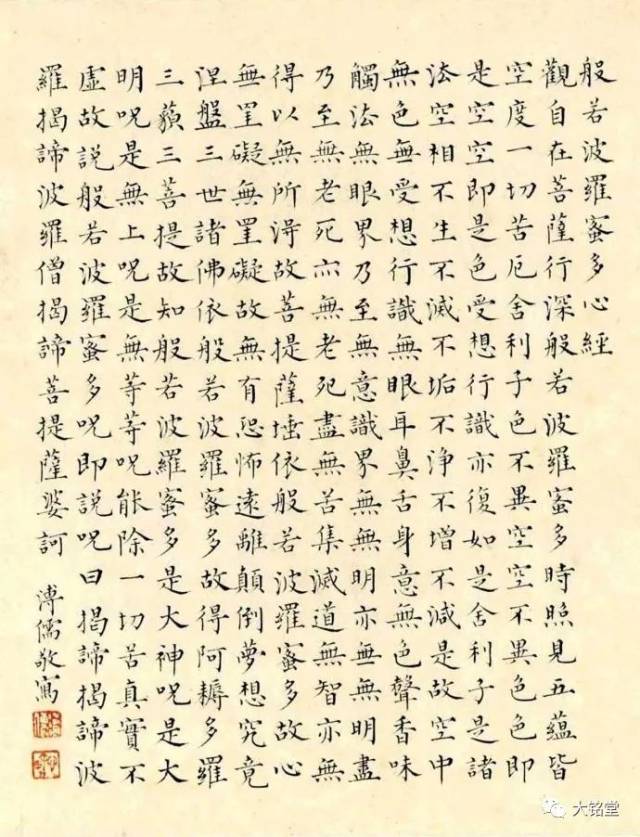 般若波羅蜜多心經
觀自在菩薩行深般若波羅蜜多時照見五蘊皆
空度一切苦厄舍利子色不異空空不異色色即
是空空即是色受想行識亦復如是舍利子是諸
法空相不生不滅不垢不淨不增不減是故空中
無色無受想行識無眼耳鼻舌身意無色聲香味
觸法無眼界乃至無意識界無無明亦無無明盡
乃至無老死亦無老死盡無苦集滅道無智亦無
得以無所得故菩提薩埵依般若波羅蜜多故心
無罣礙無罣礙故無有恐怖遠離顛倒夢想究竟
涅盤三世諸佛依般若波羅蜜多故得阿耨多羅
三藐三菩提故知般若波羅蜜多是大神呪是大
明呪是無上呪是無等等呪能除一切苦真實不
虛故說般若波羅蜜多呪即說呪曰揭諦揭諦波
羅揭諦波羅僧揭諦菩提薩婆訶 溥儒敬寫
大铭堂